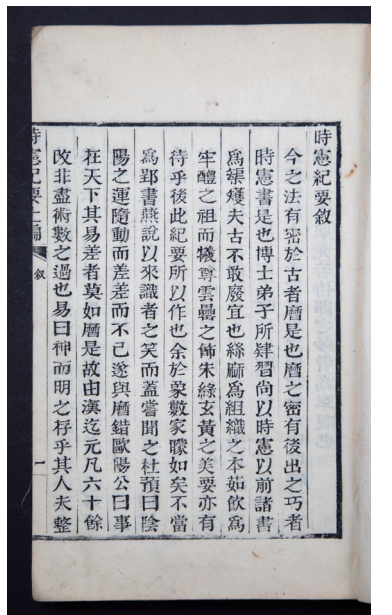 時憲紀要敘
今之法有密於古者曆是也曆之密有後出之巧者
時憲書是也博士弟子所肄習尚以時憲以前諸書
爲榘矱夫古不敢廢宜也絲麻爲組織之本茹飮爲
牢醴之祖而犧尊雲罍之飾朱綠玄黃之美要亦有
待乎後此紀要所以作也余於象數家矇如矣不當
爲郢書燕說以來識者之笑而蓋嘗聞之杜預曰陰
陽之運隨動而差差而不已遂與曆錯歐陽公曰事
在天下其易差者莫如曆是故由漢迄元凡六十餘
改非盡術數之過也易曰神而明之存乎其人夫整
時憲紀要上編
敘
一